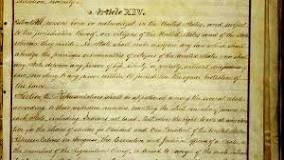 Article XIV.
born or naturalized in the United States, and subject
to the jurisdiction thereof, are citizens of the United States and of the State
wherein they reside. No State shall make or enforce any law which shall
abridge the privileges or immunities of citizens of the United States; nor shall
any State deprive any person of life, liberty, or property, without
law; nor deny to any person within its jurisdiction the equal protection of
the laws.
Section 2. Representatives shall be apportioned among the several States
according to their respective numbers, counting the whole number of persons in
each State, excluding Indians not taxed. But when the right to vote at any
for the choice of electors for President and Vice President of the United States,
Representatives in Congress, the Executive and Judicial officers of a State, or
the members of the Legislature thereof, is denied to any of the male